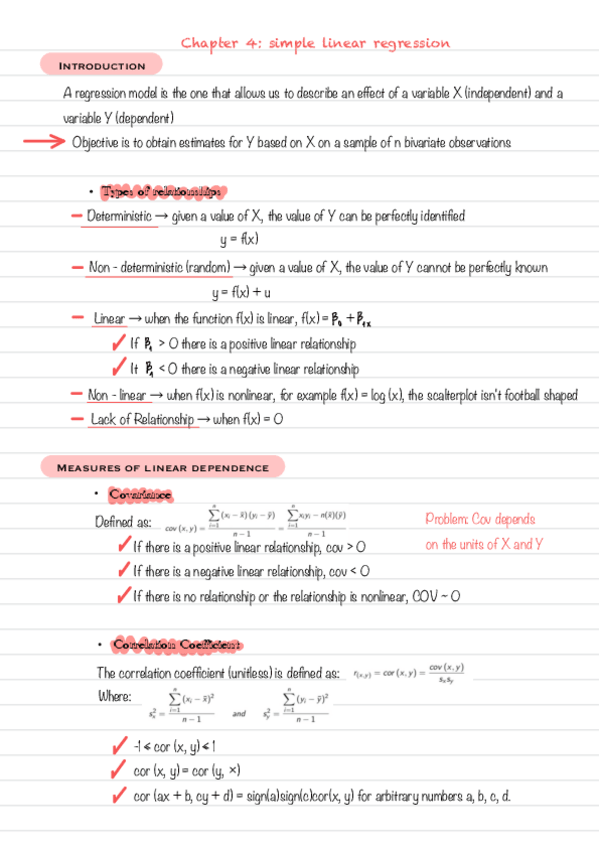 Chapter 4: simple linear regression
INTRODUCTION
A regression model is the one that allows us to describe an effect of a variable X (independent) and a
variable Y (dependent)
Objective is to obtain estimates for Y based on X on a sample of n bivariate observations
• Types of relationships
– Deterministic → given a value of X, the value of Y can be perfectly identified
y = f(x)
– Non - deterministic (random) → given a value of X, the value of Y cannot be perfectly known
y = f(x) + u
– Linear → when the function f(x) is linear, f(x) = β₀ + β₁ₓ
✓ If β₁ > 0 there is a positive linear relationship
✓ It β₁ < 0 there is a negative linear relationship
– Non - linear → when f(x) is nonlinear, for example f(x) = log (x), the scalterplot isn't football shaped
– Lack of Relationship → when f(x) = 0
MEASURES OF LINEAR DEPENDENCE
• Covariance
Defined as: cov (x, y) = ∑ⁿᵢ₌₁ (xᵢ – x̄)(yᵢ – ȳ) / n – 1 = ∑ⁿᵢ₌₁ xᵢyᵢ – n(x̄)(ȳ) / n – 1
Problem: Cov depends
on the units of X and Y
✓ If there is a positive linear relationship, cov > 0
✓ If there is a negative linear relationship, cov < 0
✓ If there is no relationship or the relationship is nonlinear, COV ~ 0
• Correlation Coefficient
The correlation coefficient (unitless) is defined as: r(x,y) = cor (x, y) = cov (x, y) / sₓsᵧ
Where: s²ₓ = ∑ⁿᵢ₌₁ (xᵢ – x̄)² / n – 1 and s²ᵧ = ∑ⁿᵢ₌₁ (yᵢ – ȳ)² / n – 1
✓ -1 ≤ cor (x, y) ≤ 1
✓ cor (x, y) = cor (y, x)
✓ cor (ax + b, cy + d) = sign(a)sign(c)cor(x, y) for arbitrary numbers a, b, c, d.